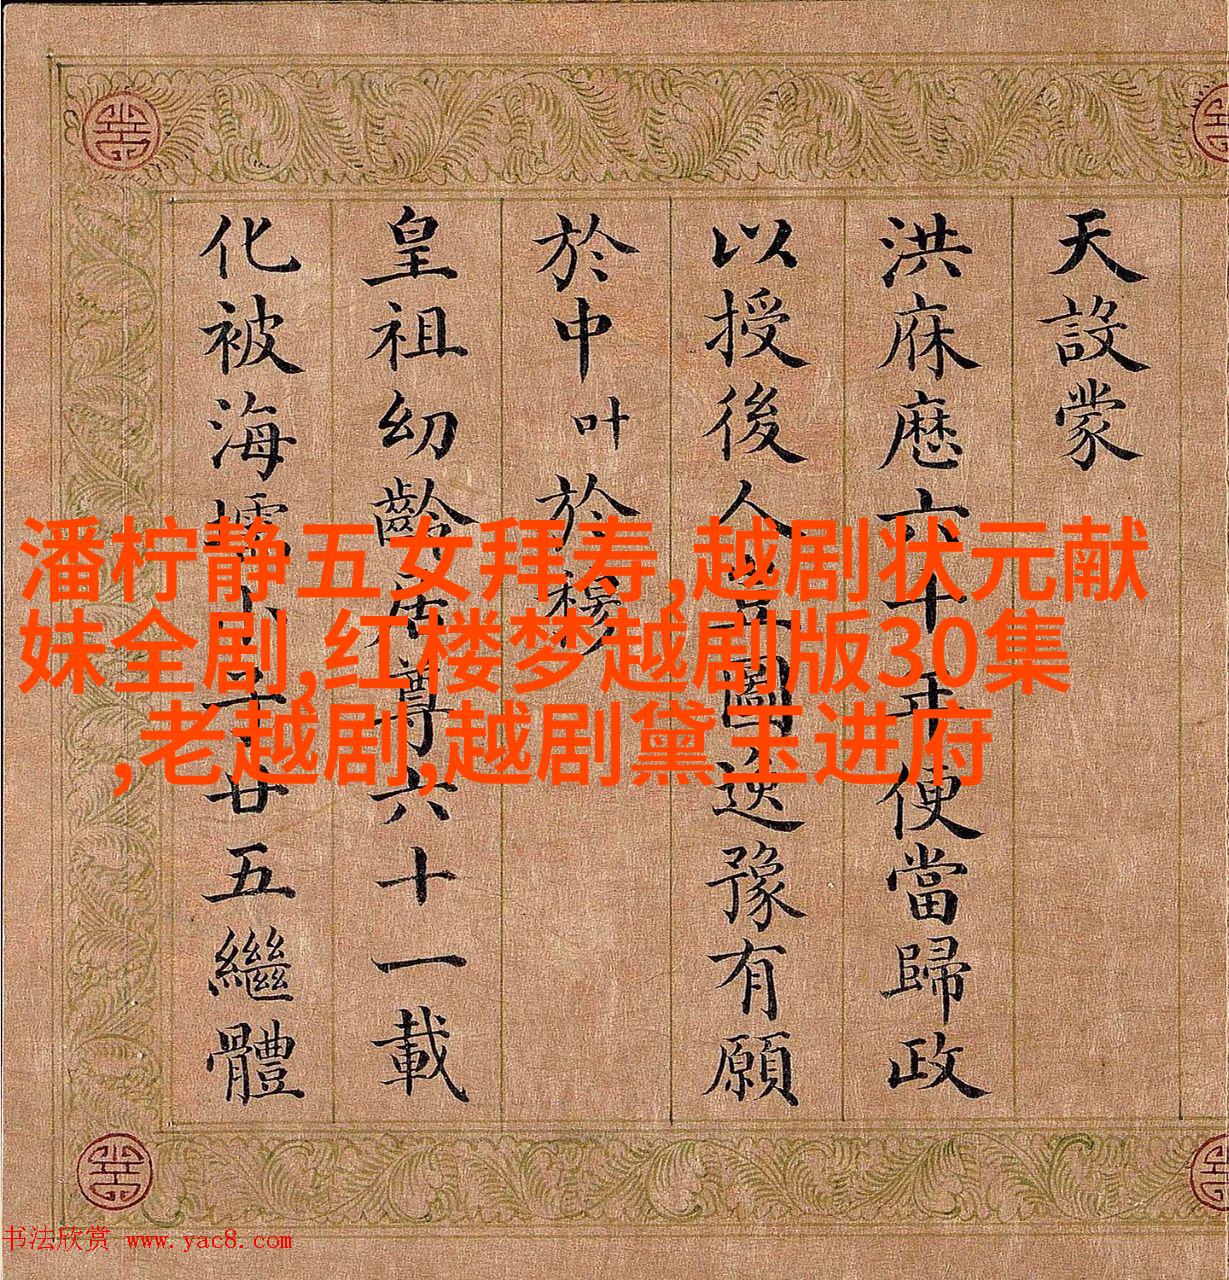 天設蒙
洪庥厯六十年便當歸政
以授後人圖逸豫有願
於中叶於穆
皇祖幼齡居尊六十一載
化被海壖小子廿五繼體
潘柠静五女拜寿,越剧状元献
妹全剧,红楼梦越剧版30集
,老越剧,越剧黛玉进府
书法欣赏 www.yac8.com